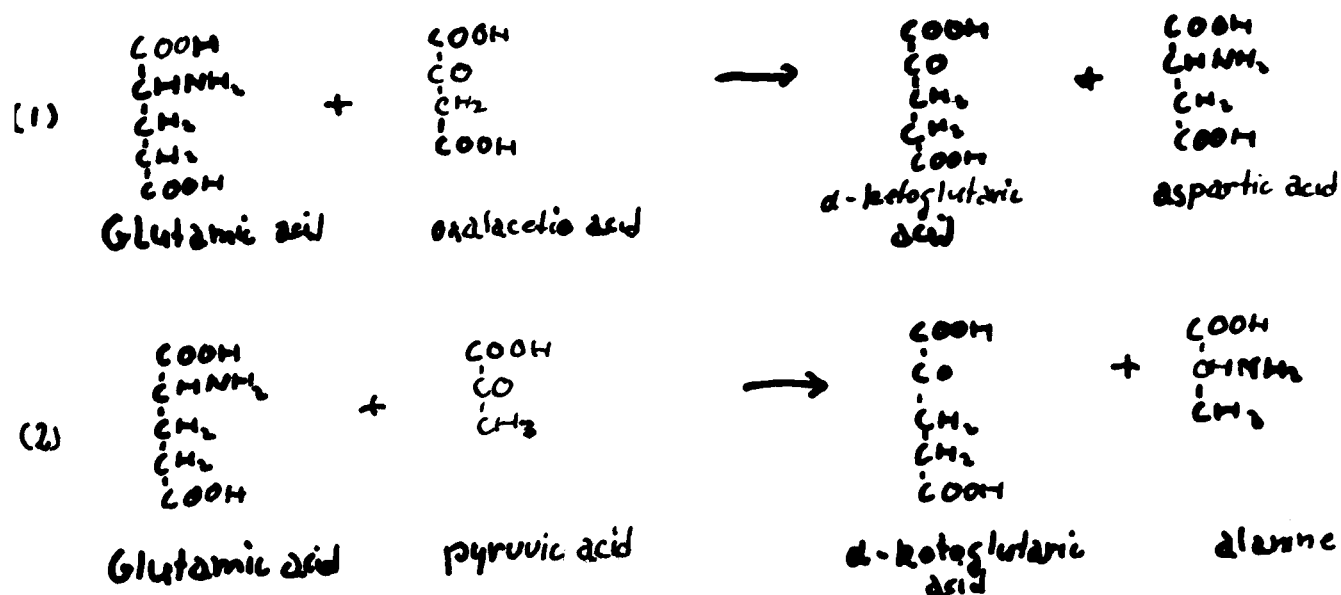 (1)
COOH
CHNH₂
CH₂
CH₂
COOH
Glutamic acid
+
COOH
CO
CH₂
COOH
oxalacetic acid
→
COOH
CO
CH₂
CH₂
COOH
α-ketoglutaric
acid
+
COOH
CHNH₂
CH₂
COOH
aspartic acid
(2)
COOH
CHNH₂
CH₂
CH₂
COOH
Glutamic acid
+
COOH
CO
CH₃
pyruvic acid
→
COOH
CO
CH₂
CH₂
COOH
α-ketoglutaric
acid
+
COOH
CHNH₂
CH₃
alanine